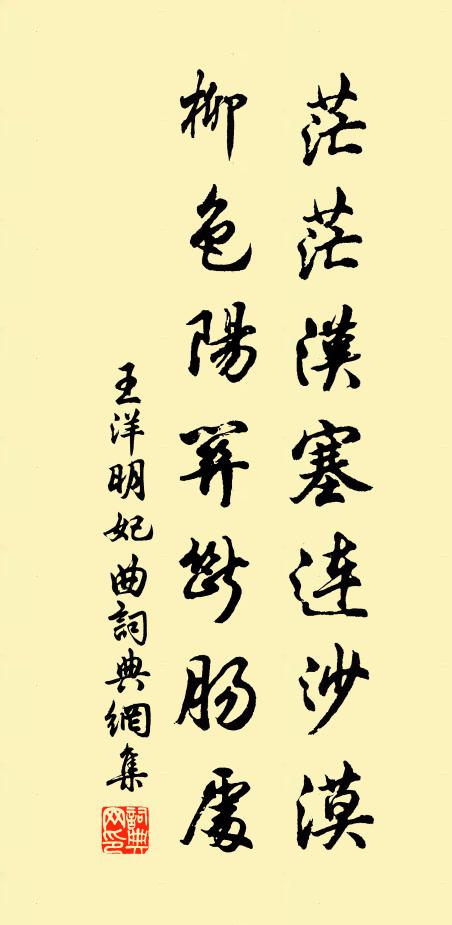 茫茫漢塞連沙漠
柳色陽關斷腸處
王洋明妃曲詞典網集
詞典網印